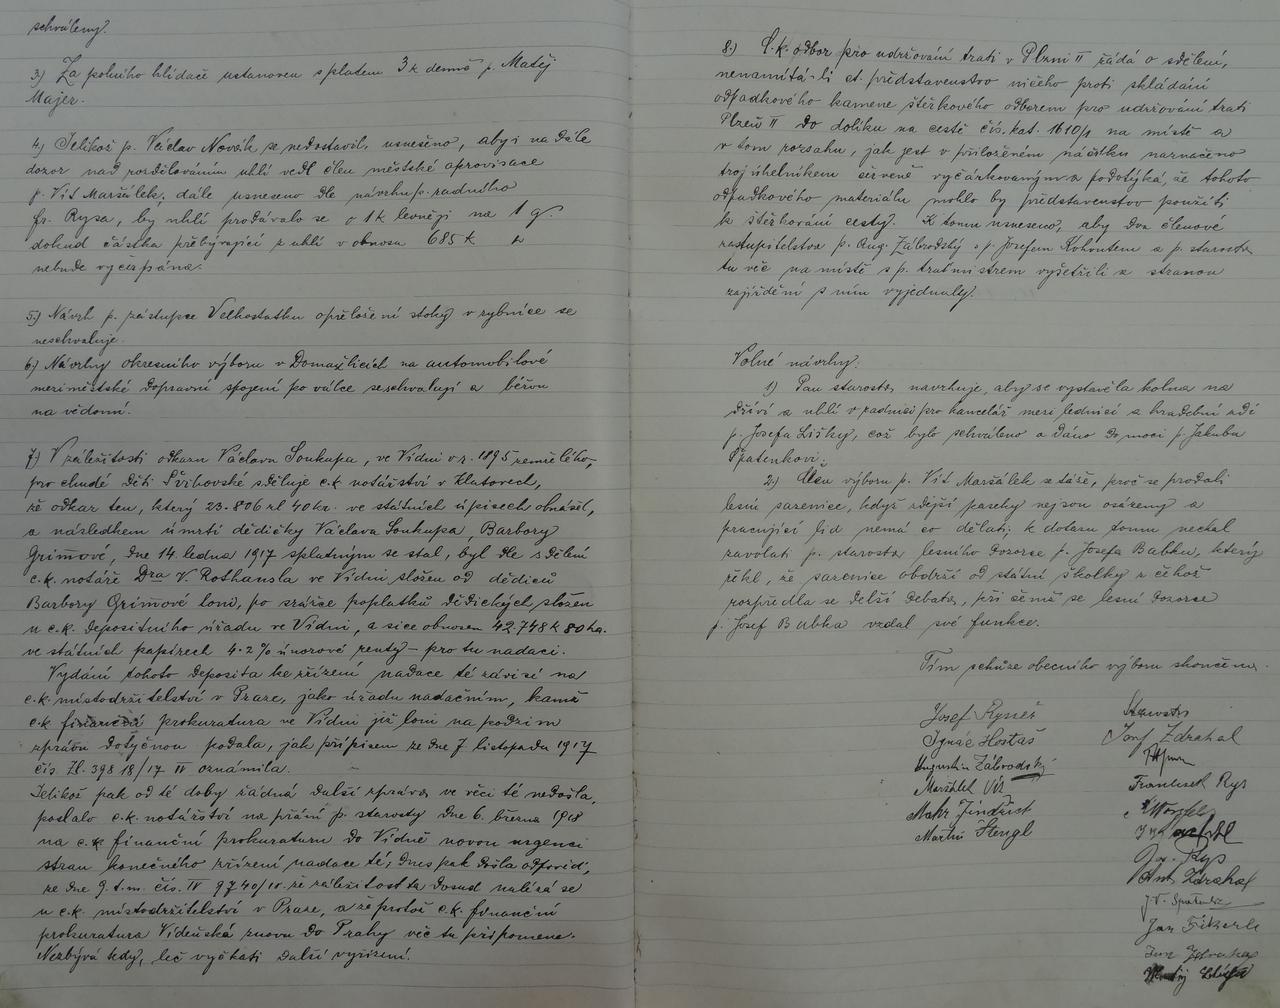 schváleny.
3.) Za polního hlídače ustanoven s platem 3 k denně p. Matěj
Majer.
4.) Jelikož p. Václav Novák se nedostavil, usneseno, aby i na dále
dozor nad rozdělováním uhlí vedl člen městské aprovisace
p. Vít Maršálek, dále usneseno dle návrhu p. radního
Fr. Rysa, by uhlí prodávalo se o 1k levněji na 1 q.
dokud částka přebývající z uhlí v obnosu 685 k
nebude vyčerpána.
5.) Návrh p. zástupce Velkostatku o přeložení stoky v rybnice se
neschvaluje.
6.) Návrhy okresního výboru v Domažlicích na automobilové
meziměstské dopravní spojení po válce se schvalují a běřou
na vědomí.
7.) V záležitosti odkazu Václava Soukupa, ve Vídni v r. 1895 zemřelého,
pro chudé děti Švihovské sděluje c.k notářství v Klatovech,
že odkaz ten, který 23.806 zl 40 kr. ve státních úpisech obnášel,
a následkem úmrtí dědičky Václava Soukupa, Barbory
Grimové, dne 14. ledna 1917 splatným se stal, byl dle sdělení
c.k. notáře Dra V. Rothansla ve Vídni složen od dědiců
Barbory Grimové loni, po srážce poplatků dědických, složen
u c.k. depositního úřadu ve Vídni, a sice obnosem 42.748 k 80 ha.
ve státních papírech 4.2% únorové renty – pro tu nadaci.
Vydání tohoto deposita ke zřízení nadace té závisí na
c.k. místodržitelství v Praze, jako úřadu nadačním, kamž
c.k finanční prokuratura ve Vídni již loni na podzim
zprávu dotyčnou podala, jak přípisem ze dne 7. listopadu 1917
čís. Zl. 398 18/17 IV oznámila.
Jelikož pak od té doby žádná další zpráva ve věci té nedošla,
podalo c.k. notářství na přání p. starosty dne 6. března 1918
na c.k finanční prokuraturu do Vídně novou urgenci
stran konečného zřízení nadace té, dnes pak došla odpověď,
ze dne 9. t.m. čís. IV 9740/IV. že záležitost ta dosud nalézá se
u c.k. místodržitelství v Praze, a že protož c.k. finanční
prokuratura Vídeňská znovu do Prahy věc tu připomene.
Nezbývá tedy, leč vyčkati další vyřízení.
8.) C.k. odbor pro udržování trati v Plzni II žádá o sdělení,
nenamítá-li ct. představenstvo ničeho proti skládání
odpadkového kamene štěrkového odborem pro udržování trati
Plzeň II do dolíku na cestě čís. kat. 1610/1 na místě a
v tom rozsahu, jak jest v přiloženém náčrtku naznačeno
trojúhelníkem červeně vyčárkovaným a podotýká, že tohoto
odpadkového materiálu mohlo by představenstvo použíti
k štěrkování cesty. K tomu usneseno, aby dva členové
zastupitelstva p. Aug. Zábrodský s p. Josefem Kohoutem a p. starosta
tu věc na místě s p. traťmistrem vyšetřili a stranou
zajíždění s ním vyjednaly.
Volné návrhy:
1) Pan starosta navrhuje, aby se vystavěla kolna na
dříví a uhlí v radnici pro kancelář mezi lednicí a hradební zdí
p. Josefa Lišky, což bylo schváleno a dáno do moci p. Jakubu
Špatenkovi.
2.) Člen výboru p. Vít Maršálek se táže, proč se prodali
lesní sazenice, když zdejší paseky nejsou osázeny a
pracující lid nemá co dělati. K dotazu tomu nechal
zavolati p. starosta lesního dozorce p. Josefa Babku, který
řekl, že sazenice obdrží od státní školky z čehož
rozpředla se delší debata, při čemž se lesní dozorce
p. Josef Babka vzdal své funkce.
Tím schůze obecního výboru skončena.
Josef Rysner
Starosta
Ignác Hostaš
Josef Zdrahal
Augustin Zábrodský
Maršálek Vít
František Rys
Mahr Jindřich
Martin Hengl
Jos. Rys
Ant Zdrahal
J.V. Špatenka
Jan Fitzerle